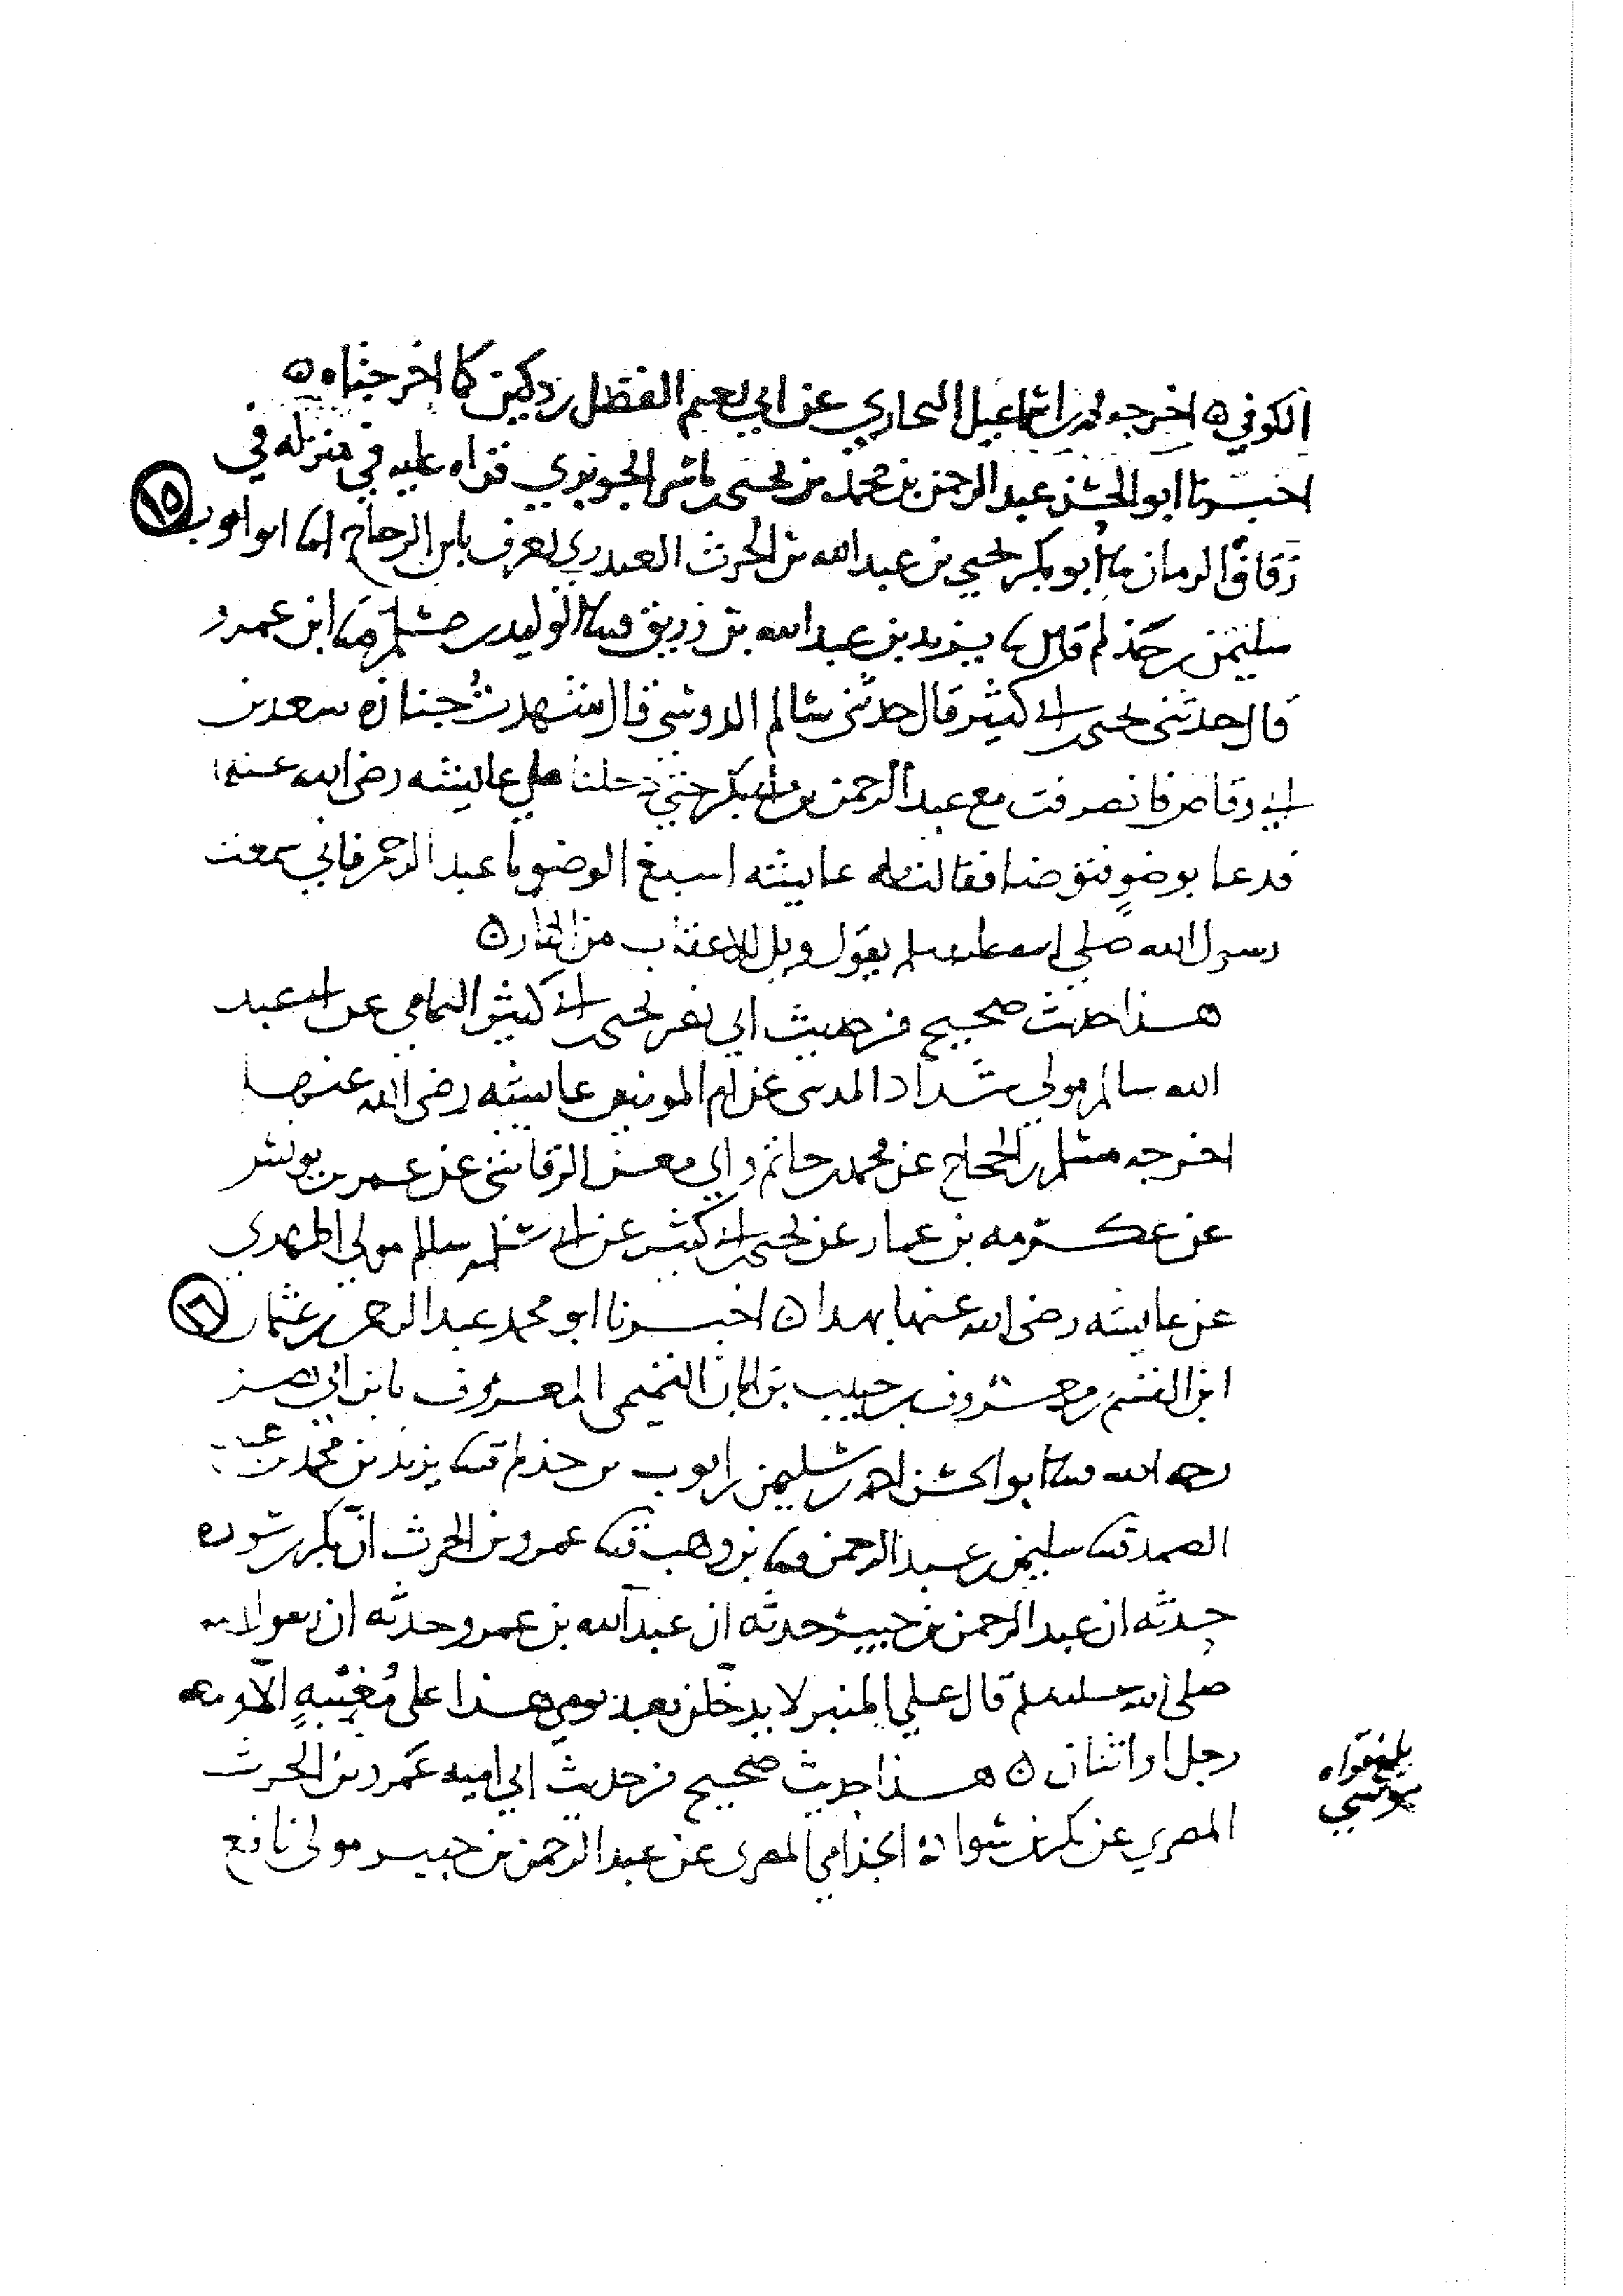 الكوفي ٥ اخرجه محمد بن اسماعيل البخاري عن ابي نعيم الفضل بن دكين كما اخرجناه ٥
اخبرنا ابو الحسن عبد الرحمن بن محمد بن يحيى بن ياسر الجوبري قراه عليه في منزله في
زقاق الرمان نا ابو بكر يحيى بن عبد الله بن الحرث العبدري يعرف بابن الزجاج انا ابو ايوب ١٥
سليمن بن حذلم قال نا يزيد بن عبد الله بن زريق نا الوليد بن مسلم نا ابن عمرو
قال حدثني يحيى بن ابي كثير قال حدثني سالم الدوسي قال شهدت جنازه سعد بن
ابي وقاص فانصرفت مع عبد الرحمن بن ابي بكر حتى دخلنا على عايشه رضي الله عنها
فدعا بوضوٍ فتوضا فقالت له عايشه اسبغ الوضو يا عبد الرحمن فاني سمعت
رسول الله صلى الله عليه وسلم يقول ويل للاعقاب من النار ٥
هذا حديث صحيح من حديث ابي نصر يحيى بن ابي كثير اليمامي عن ابي عبد
الله سالم مولى شداد المدني عن ام المومنين عايشه رضي الله عنها
اخرجه مسلم بن الحجاج عن محمد بن حاتم وابي معن الرقاشي عن عمر بن يونس
عن عكرمه بن عمار عن يحيى بن ابي كثير عن ابي سلمه عن سالم مولى المهري
عن عايشه رضي الله عنها بهذا ٥ اخبرنا ابو محمد عبد الرحمن بن عثمان ١٦
ابن القسم بن معروف بن حبيب بن ابان التميمي المعروف بابن ابي نصر
رحمه الله نا ابو الحسن احمد بن سليمن بن ايوب بن حذلم نا يزيد بن محمد بن عبد
الصمد نا سليمن بن عبد الرحمن نا بن وهب نا عمرو بن الحرث ان بكر بن سوده
حدثه ان عبد الرحمن بن جبير حدثه ان عبد الله بن عمرو حدثه ان رسول الله
صلى الله عليه وسلم قال على المنبر لا يدخلن بعد يومي هذا على مُغيّبهٍ الّا ومعه
رجل او اثنان ٥ هذا حديث صحيح من حديث ابي اميه عمرو بن الحرث
المصري عن بكر بن سواده الجذامي المصري عن عبد الرحمن بن جبير مولى نافع
بلغ قراه